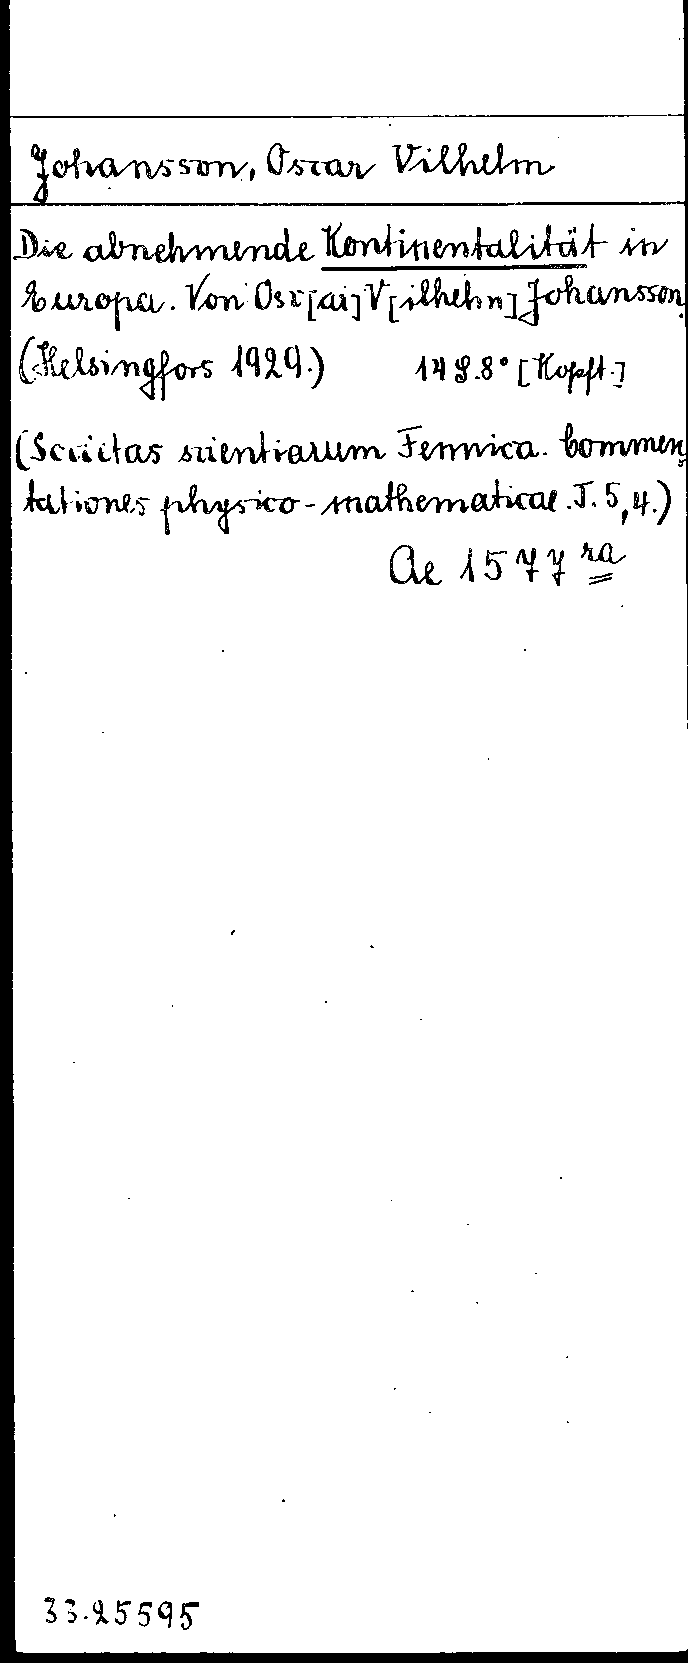 Johansson, Oscar Vilhelm
Die abnehmende Kontinentalität in
Europa. Von Osc[ar] V[ilhelm] Johansson.
(Helsingfors 1929.) 14 S. 8° [Kopft.]
(Societas scientiarum Fennica. Commen-
tationes physico-mathematicae. T. 5,4.)
Ae 1577 ra
33.25595